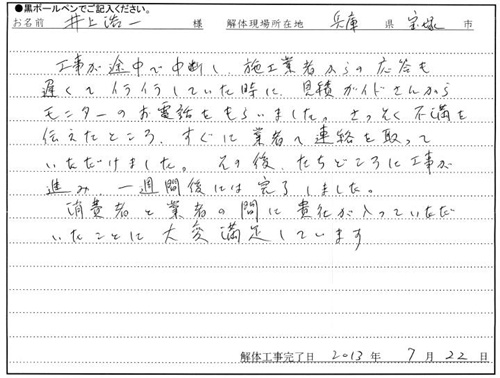 ●黒ボールペンでご記入ください。
お名前 井上浩一 様 解体現場所在地 兵庫 県 宝塚 市
工事が途中で中断し、施工業者からの応答も
遅くてイライラしていた時に、見積ガイドさんから
モニターのお電話をもらいました。さっそく不満を
伝えたところ、すぐに業者へ連絡を取って
いただけました。その後、たちどころに工事が
進み、一週間後には完了しました。
消費者と業者の間に貴社が入っていただ
いたことに大変満足しています
解体工事完了日 2013 年 7 月 22 日